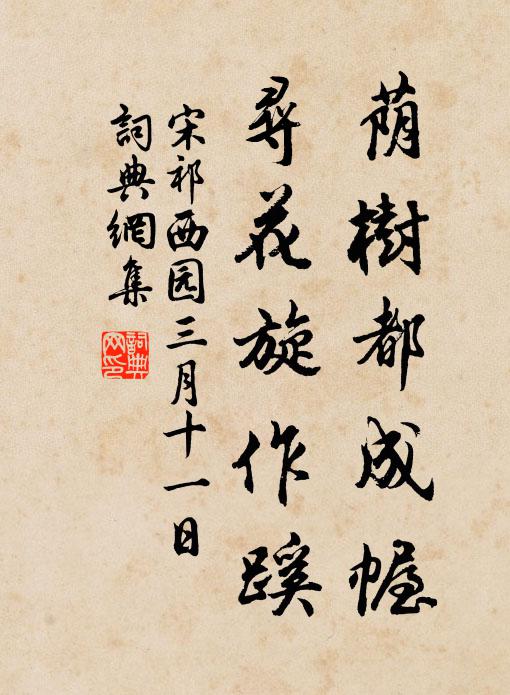 荫樹都成幄
尋花旋作蹊
宋祁西园三月十一日
詞典網集
詞典
网印